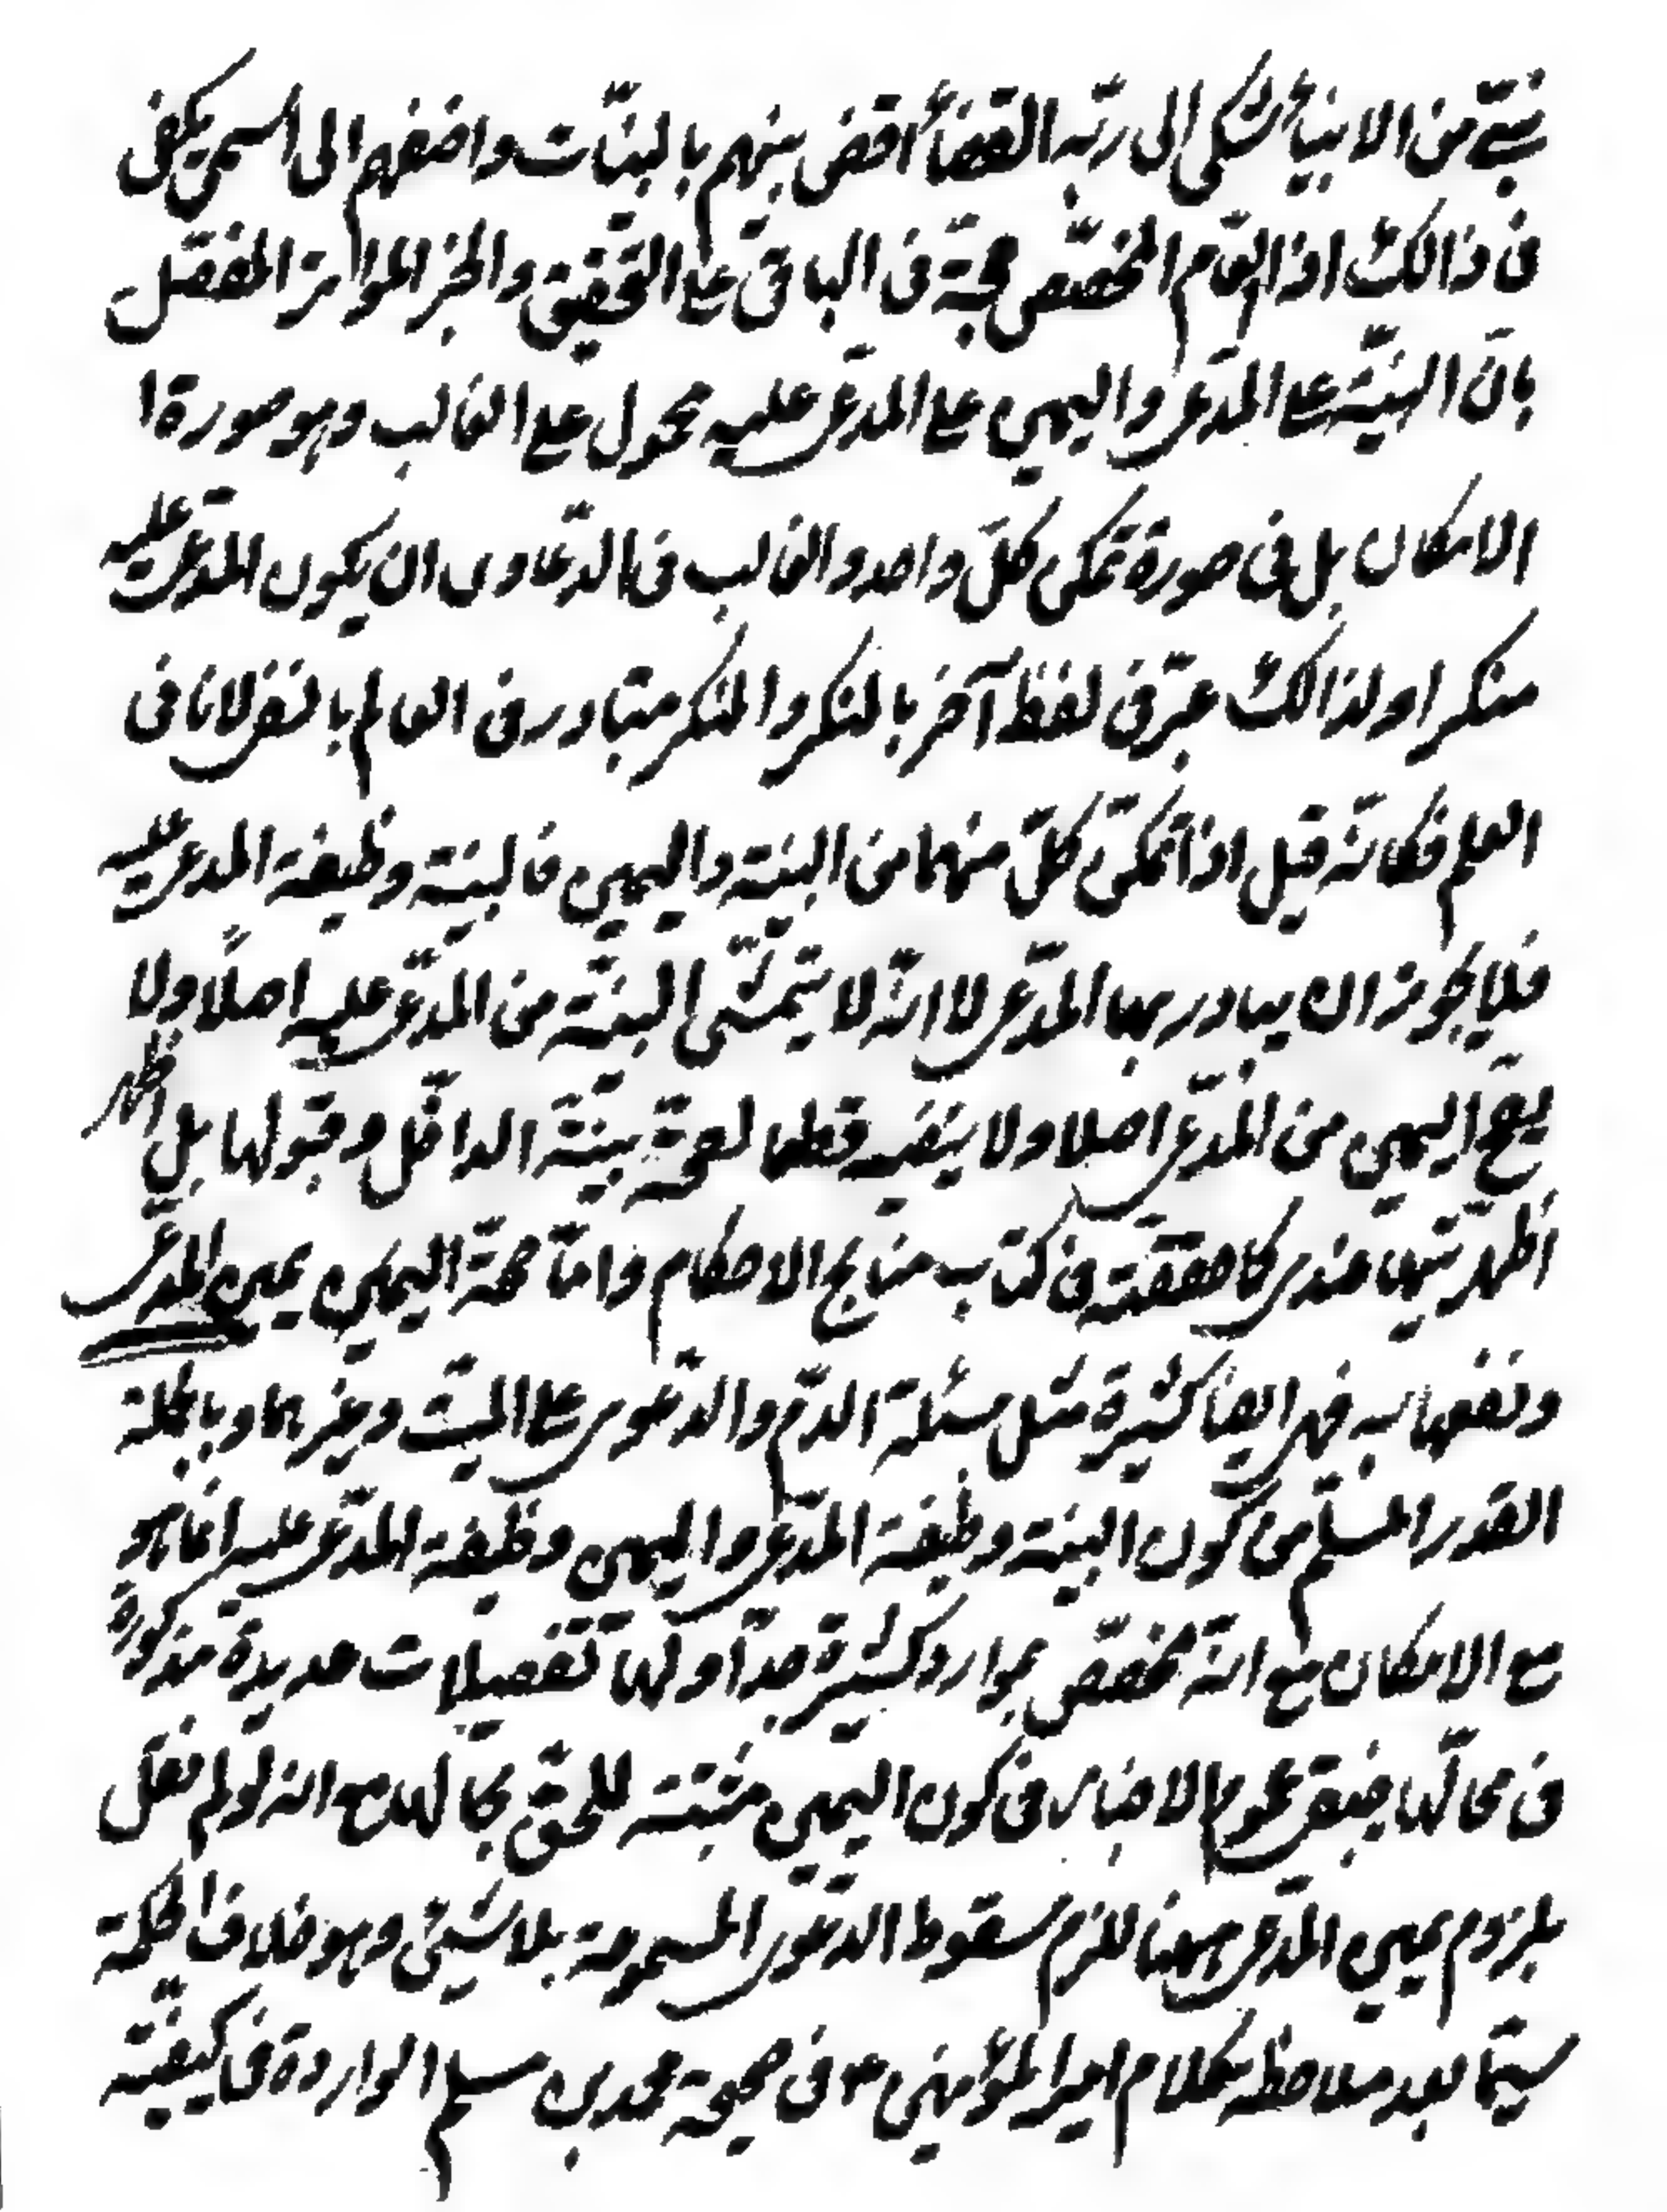 نبيّ من الانبيأ شكى الى ربّه القضأ اقض بينهم بالبيّنات واضفهم الى اسمى يكفى
فى ذالك اذ العامّ المخصّص حجة فى الباقى على التحقيق والخبر المواتر المفصّل
بانّ البيّنة على المدّعى واليمين على المدّعى عليه محمول على الغالب وهو صورة ا
الامكان بل فى صورة تمكن كلّ واحد والغالب فى الدّعاوى ان يكون المدّعى عليه
منكرا ولذالك عبّر فى لفظ آخر بالمنكر والمنكر متبادر فى العالم بالنفى لا نافى
العلم فكانّه قيل اذا تمكّن كلّ منهما من البيّنة واليمين فالبيّنة وظيفة المدعى عليه
فلا يجوز ان يبادر بها المدّعى لا انّه لا يتمشّى البيّنة من المدّعى عليه اصلًا ولا
يصحّ اليمين من المدّعى اصلا ولا ينفيه قطعا لصحّة بيّنة الداخل وقبولها بل اظهر
اظهريّتها عندى كما حققته فى كتاب مناهج الاحكام وامّا صحّة اليمين يمين المدّعى
ونفعها به فهى ايضا كثيرة مثل مسئلة الدّم والدّعوى على الميّت وغيرهما وبالجملة
القدر المسلّم من كون البيّنة وظيفة المدّعى واليمين وظيفة المدّعى عليه انما هو
مع الامكان مع انّه مخصّص بموارد كثيرة جدّا ولها تفصيلات عديدة مذكورة
فى محالّها فيبقى عموم الاخبار فى كون اليمين مثبتة للحقّ بحالها مع انه لو لم نقل
بلزوم يمين المدّعى ههنا للزم سقوط الدّعوى المسموعة بلا شيئ وهو خلاف الحكمة
سيّما بعد ملاحظة كلام امير المؤمنين ع فى صحيحة محمد بن مسلم الواردة فى كيفيّة